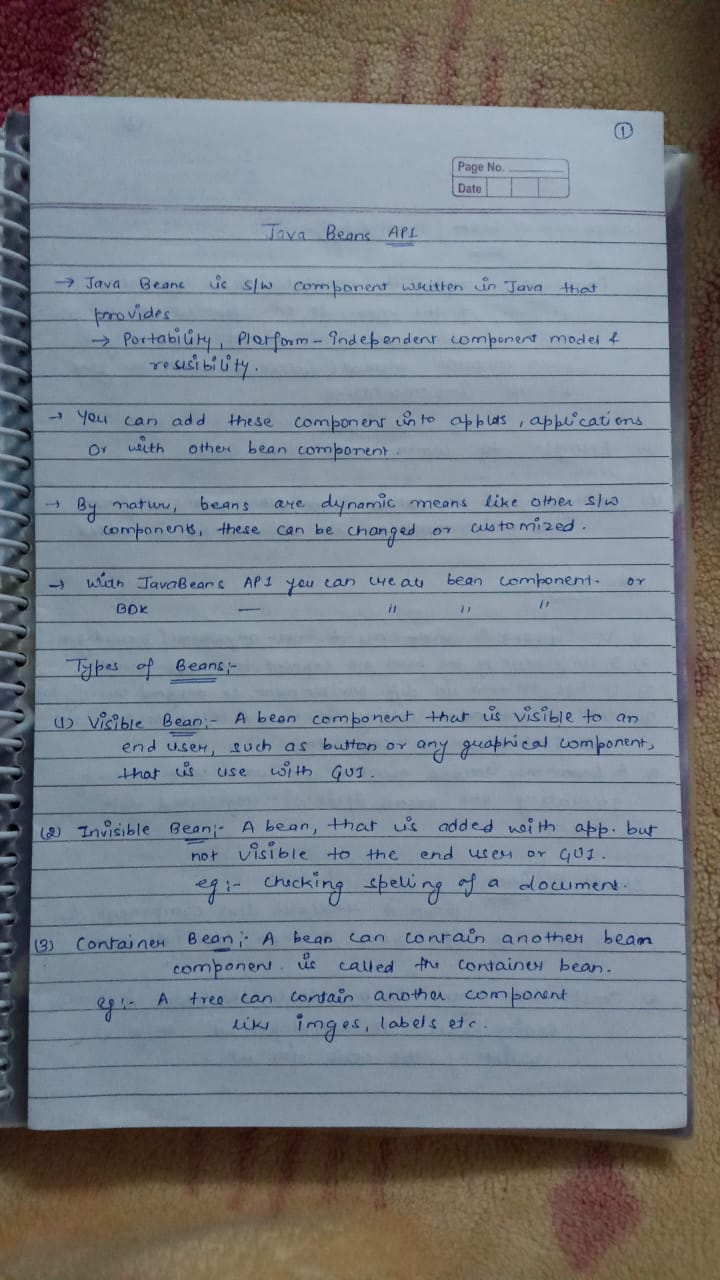 1
Page No.
Date
Java Beans API
→ Java Beans is s/w component written in Java that
provides
→ Portability, Platform-Independent component model &
resusibility.
→ You can add these component into applets, applications
Or with other bean component.
→ By nature, beans are dynamic means like other s/w
components, these can be changed or customized.
→ With JavaBeans API you can create bean component. or
BDK — " " "
Types of Beans:-
(1) Visible Bean:- A bean component that is visible to an
end user, such as button or any graphical component,
that is use with GUI.
(2) Invisible Bean:- A bean, that is added with app. but
not visible to the end user or GUI.
eg:- checking spelling of a document.
(3) Container Bean:- A bean can contain another bean
component is called the container bean.
eg:- A tree can contain another component
like imges, labels etc.